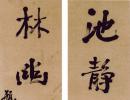 池静
林幽